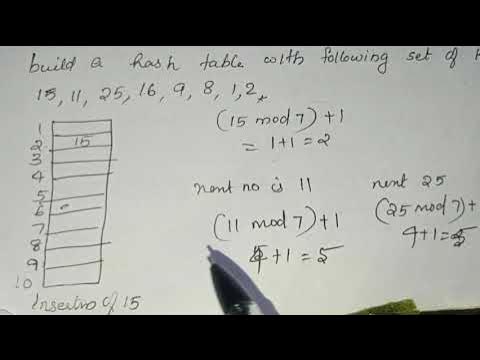 build a hash table with following set of
15, 11, 25, 16, 9, 8, 1, 2,
(15 mod 7) + 1
= 1+1 = 2
1
2 15
3
4
5
6
7
8
9
10
next no is 11
(11 mod 7) + 1
4 + 1 = 5
next 25
(25 mod 7) +
4 + 1 = 5
Insertno of 15